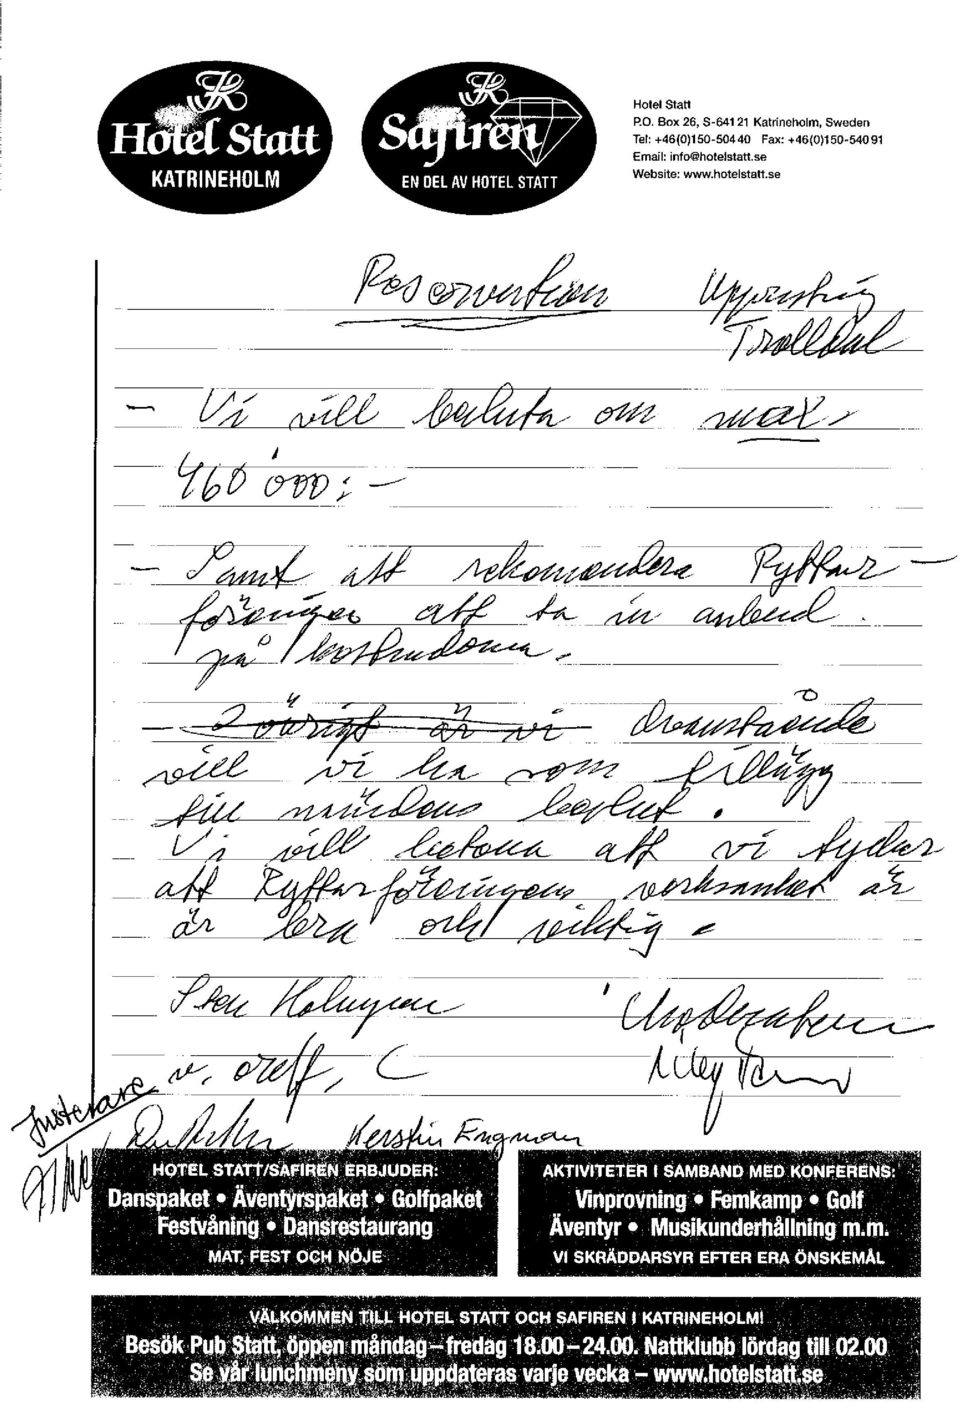 Hotel Statt
KATRINEHOLM
Safiren
EN DEL AV HOTEL STATT
Hotel Statt
P.O. Box 26, S-641 21 Katrineholm, Sweden
Tel: +46(0)150-504 40 Fax: +46(0)150-540 91
Email: info@hotelstatt.se
Website: www.hotelstatt.se
Reservention Upprustning
Trolldal
- Vi vill besluta om max,
460'000:-
- Samt att rekomendera Ryttar-
föreningen att ta in anbud
på kostnaderna.
- I övrigt är vi Ovanstående
vill vi ha som tillägg
till nämndens beslut.
Vi vill betona att vi tycker
att Ryttarföreningens verksamhet är
är bra och viktig.
Sten Holmgren
v. ordf, C
Justerare
Kerstin Engman
HOTEL STATT/SAFIREN ERBJUDER:
Danspaket • Äventyrspaket • Golfpaket
Festvåning • Dansrestaurang
MAT, FEST OCH NÖJE
AKTIVITETER I SAMBAND MED KONFERENS:
Vinprovning • Femkamp • Golf
Äventyr • Musikunderhållning m.m.
VI SKRÄDDARSYR EFTER ERA ÖNSKEMÅL
VÄLKOMMEN TILL HOTEL STATT OCH SAFIREN I KATRINEHOLM!
Besök Pub Statt, öppen måndag–fredag 18.00–24.00. Nattklubb lördag till 02.00
Se vår lunchmeny som uppdateras varje vecka – www.hotelstatt.se